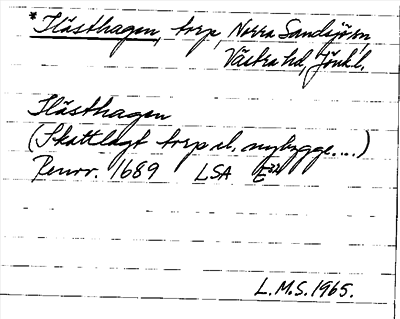 *Hästhagen, torp, Norra Sandsjö sn,
Västra hd, Jönk.l.
Hästhagen
(Skattlagt torp el. nybygge....)
Renov. 1689 LSA E
L.M.S. 1965.